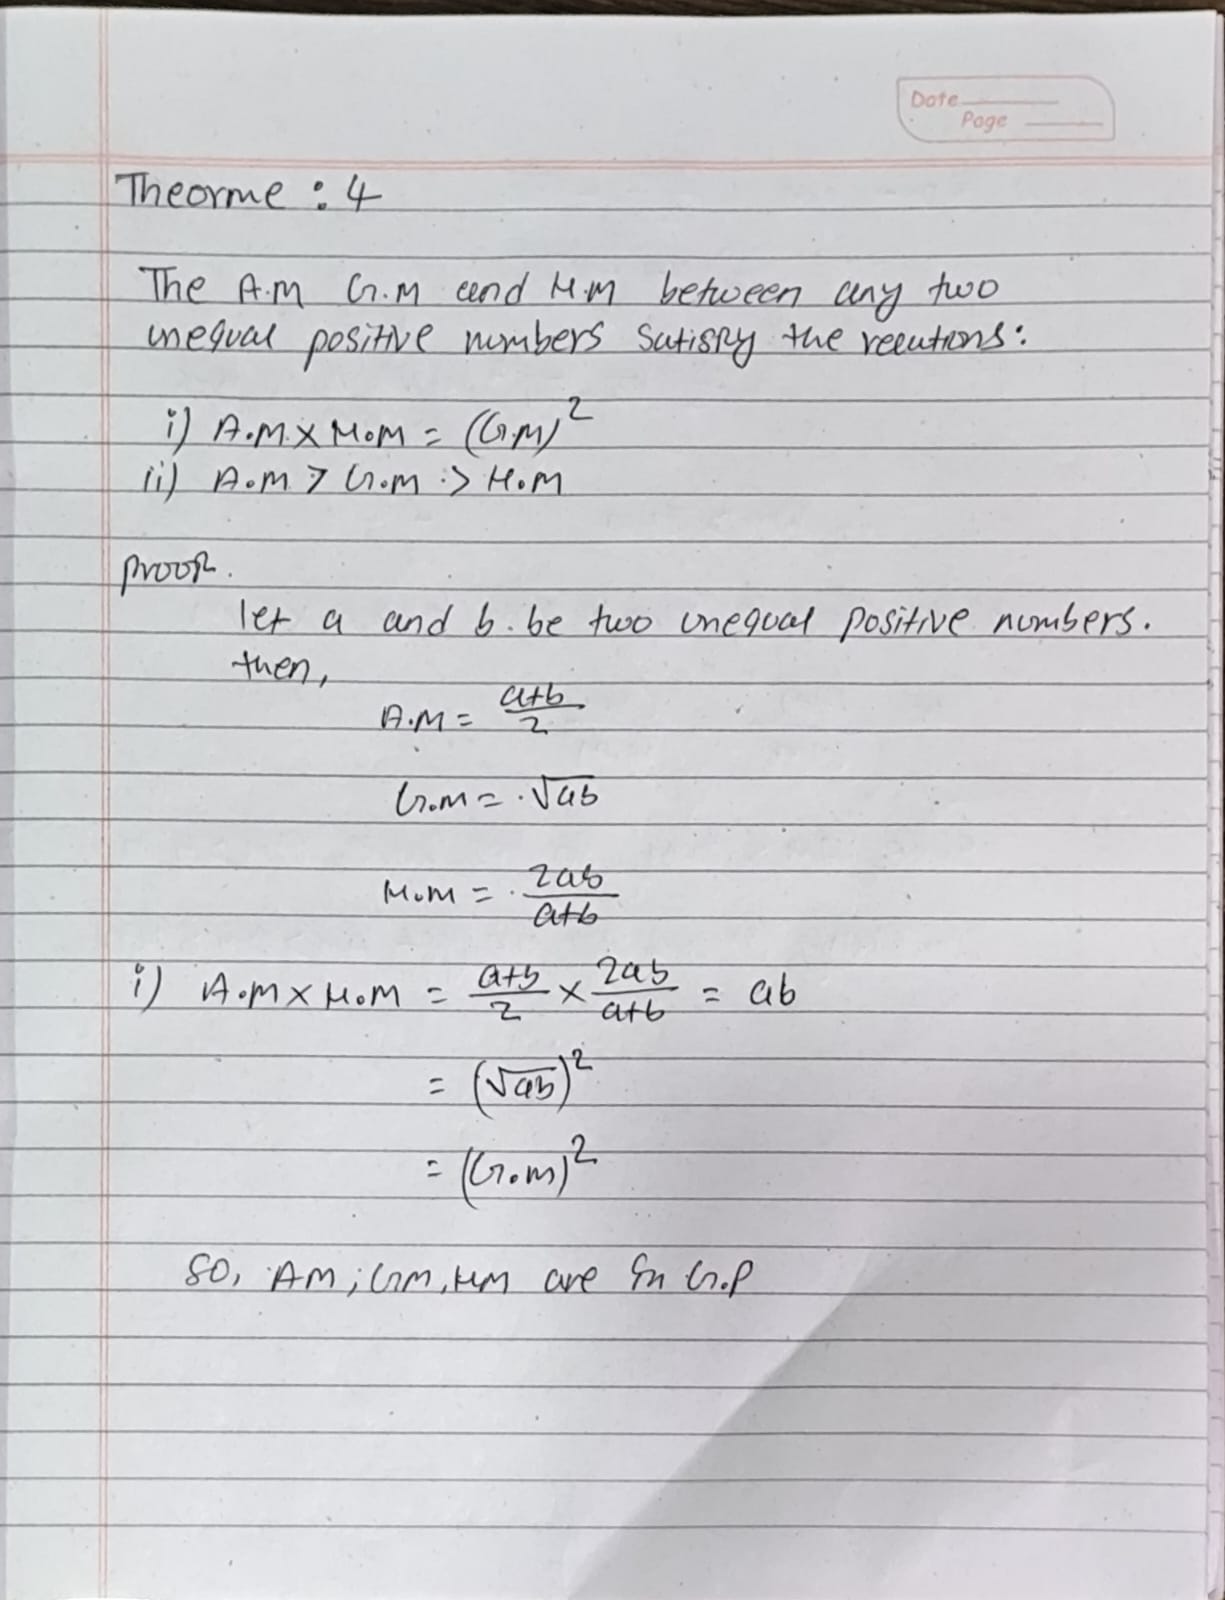 Date
Page
Theorme : 4
The A.M G.M and H.M between any two
unequal positive numbers satisfy the relations:
i) A.M × H.M = (G.M)²
ii) A.M > G.M > H.M
proof.
let a and b be two unequal positive numbers.
then,
A.M = a+b/2
G.M = √ab
H.M = 2ab/a+b
i) A.M × H.M = a+b/2 × 2ab/a+b = ab
= (√ab)²
= (G.M)²
So, AM, GM, HM are in G.P